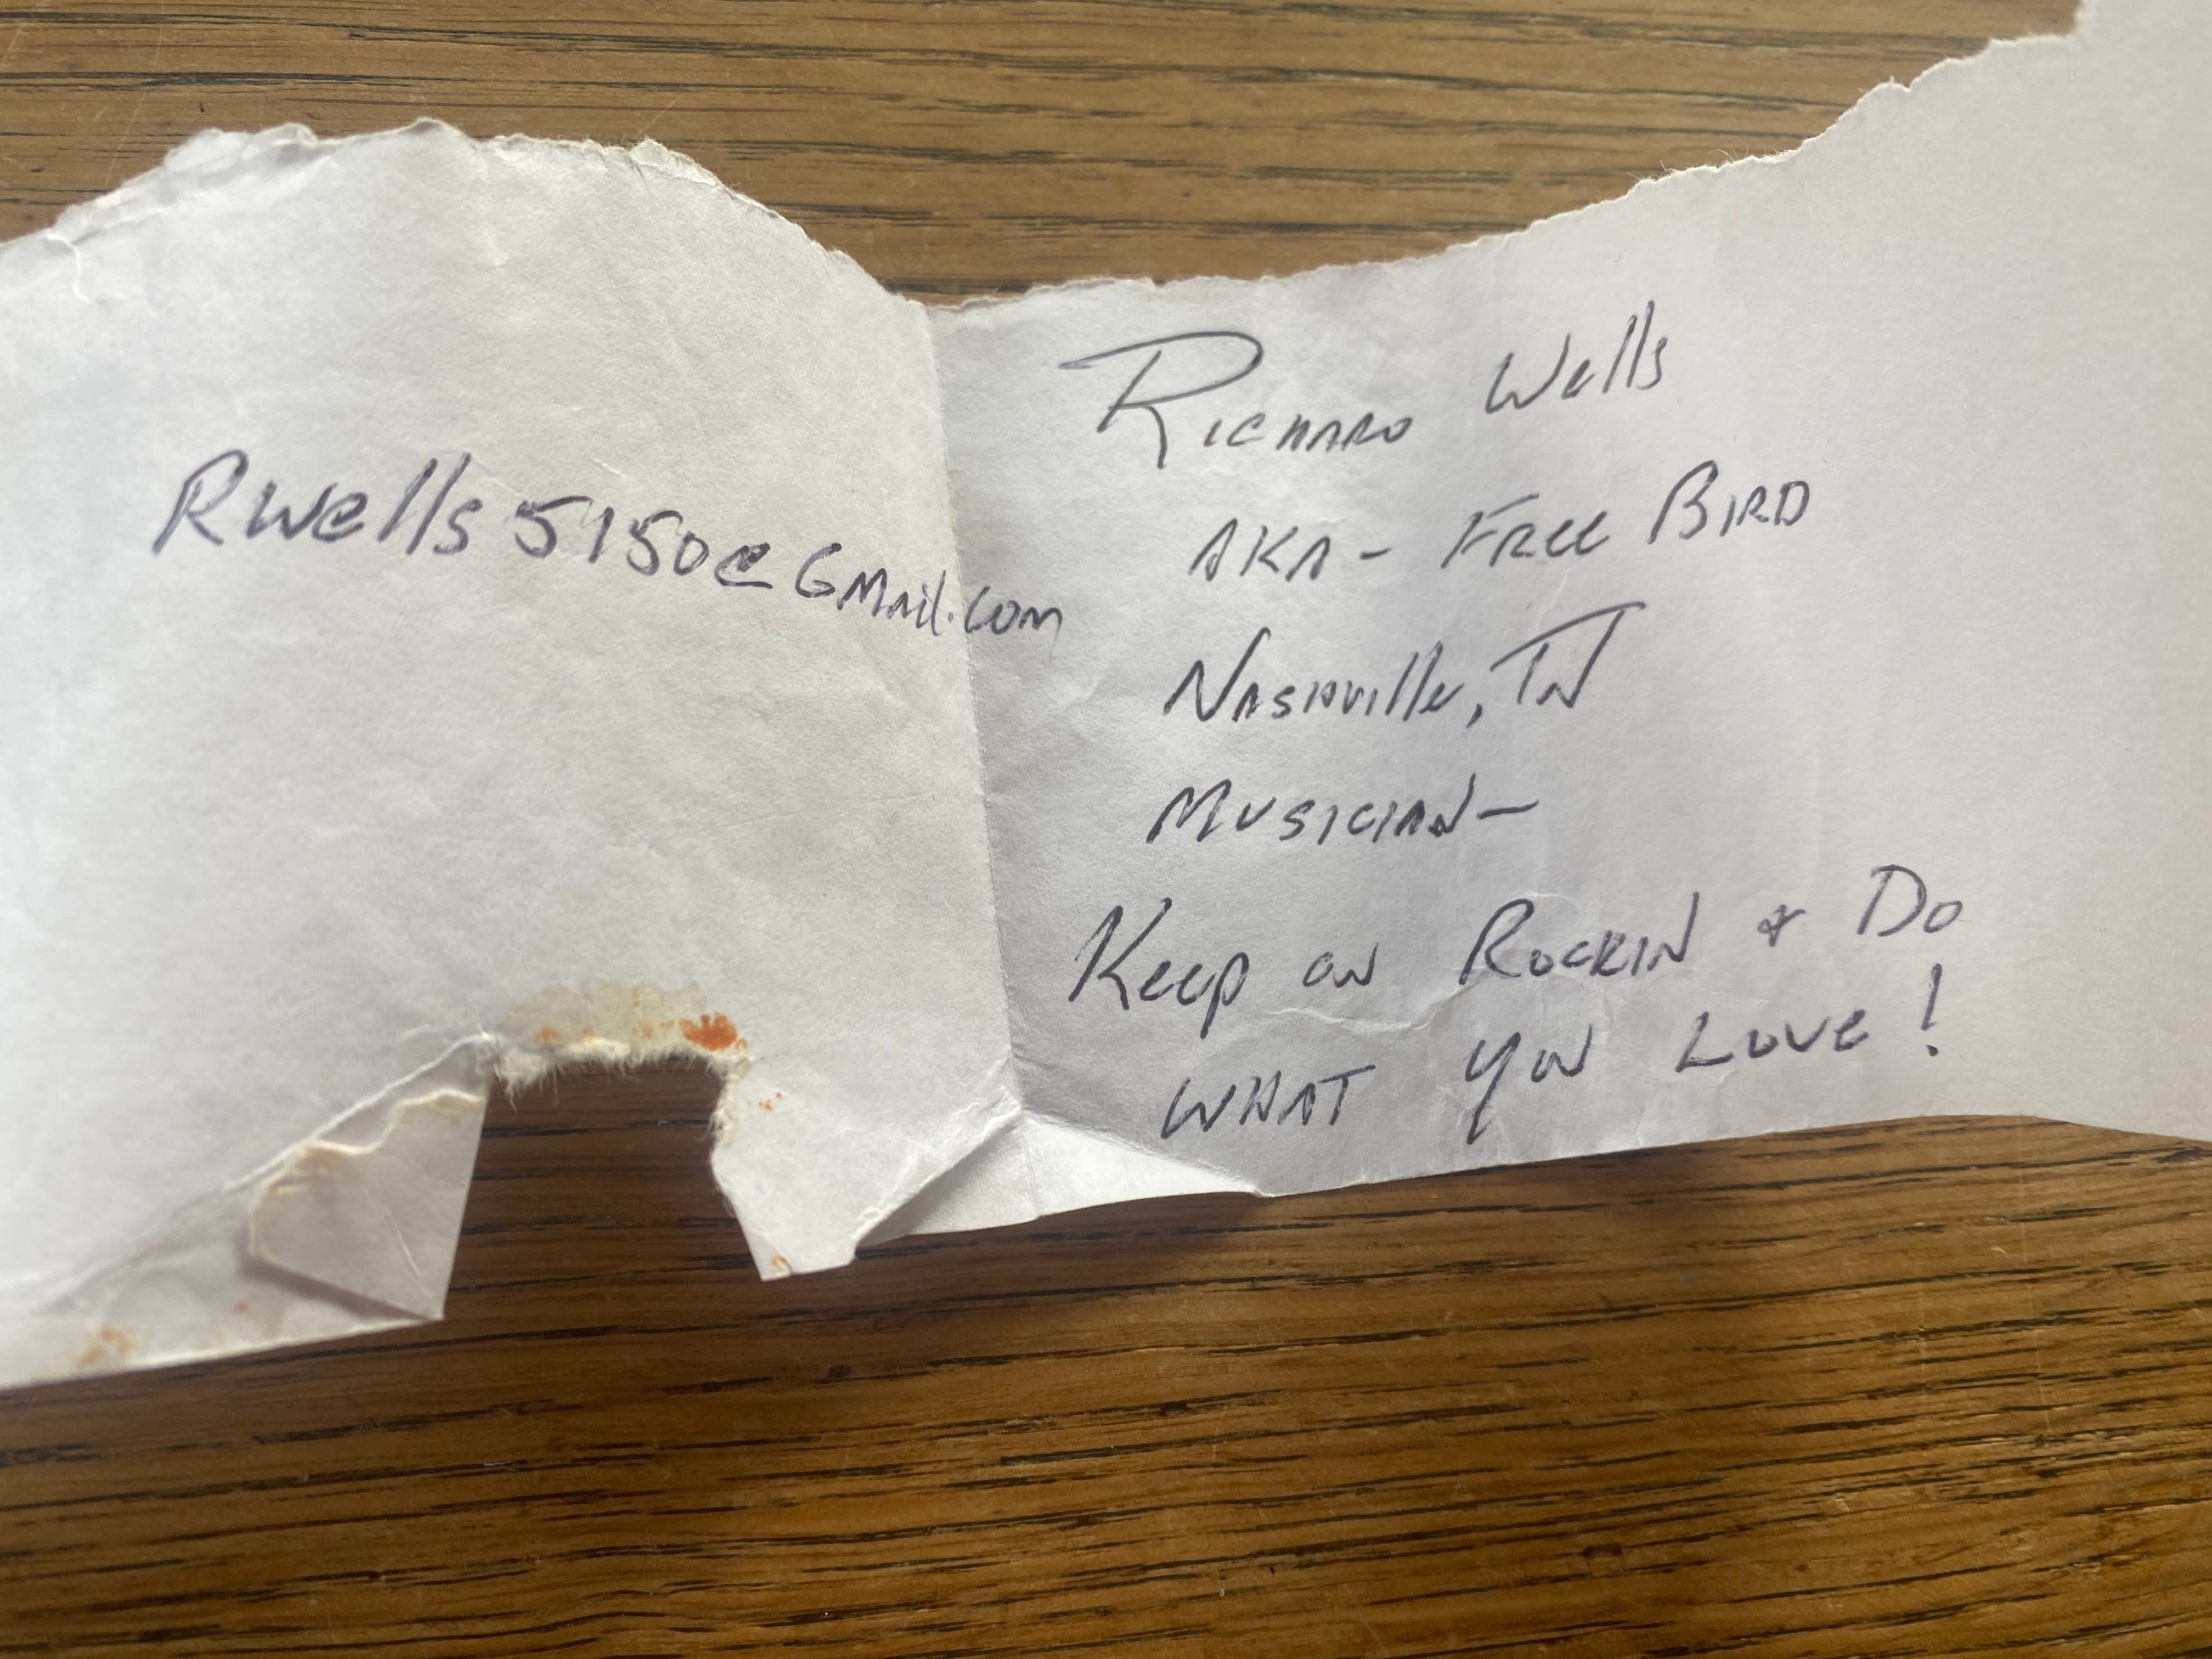 Rwells5150@GMail.com
Richard Wells
AKA- Free Bird
Nashville, TN
Musician-
Keep on Rockin & Do
what you Love!